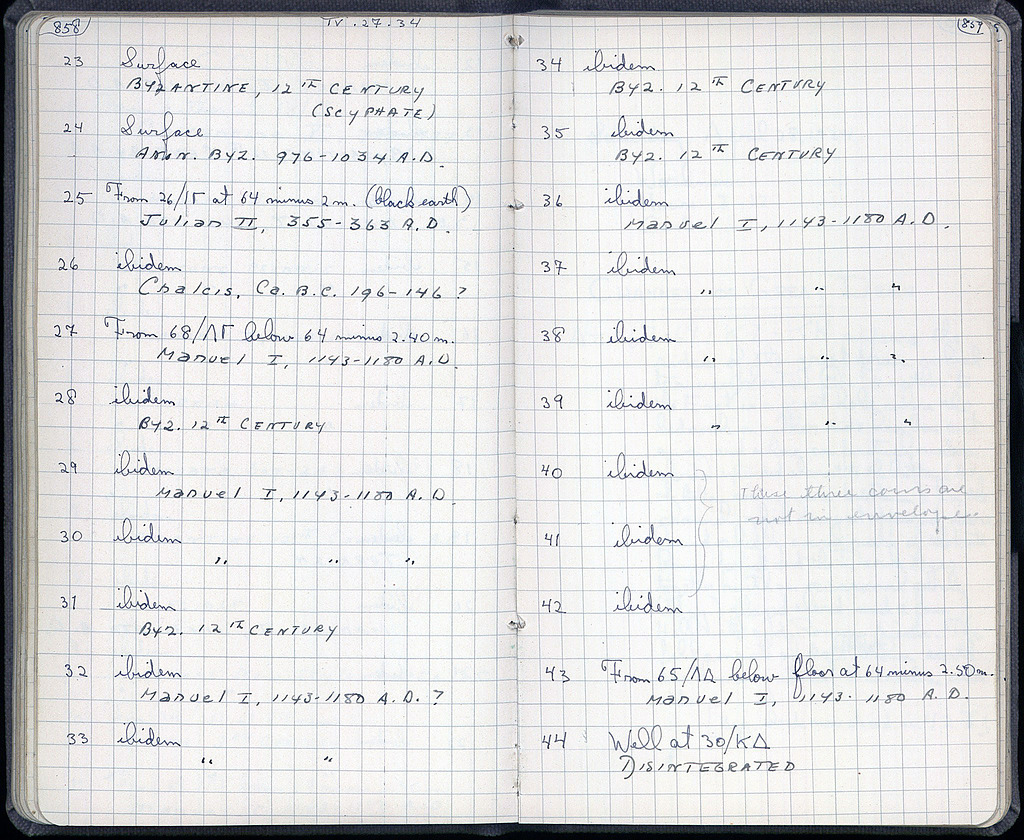 858
IV.27.34
23 Surface
BYZANTINE, 12TH CENTURY
(SCYPHATE)
24 Surface
ANON. BYZ. 976-1034 A.D.
25 From 26/ΙΓ at 64 minus 2 m. (black earth)
Julian II, 355-363 A.D.
26 ibidem
Chalcis, Ca. B.C. 196-146 ?
27 From 68/ΛΓ below 64 minus 2.40 m.
Manuel I, 1143-1180 A.D.
28 ibidem
BYZ. 12TH CENTURY
29 ibidem
Manuel I, 1143-1180 A.D.
30 ibidem
" " "
31 ibidem
BYZ. 12TH CENTURY
32 ibidem
Manuel I, 1143-1180 A.D. ?
33 ibidem
" "
859
34 ibidem
BYZ. 12TH CENTURY
35 ibidem
BYZ. 12TH CENTURY
36 ibidem
Manuel I, 1143-1180 A.D.
37 ibidem
" " "
38 ibidem
" " "
39 ibidem
" " "
40 ibidem
These three coins are
not in envelope.
41 ibidem
42 ibidem
43 From 65/ΛΔ below floor at 64 minus 2.50 m.
Manuel I, 1143-1180 A.D.
44 Well at 30/ΚΔ
DISINTEGRATED